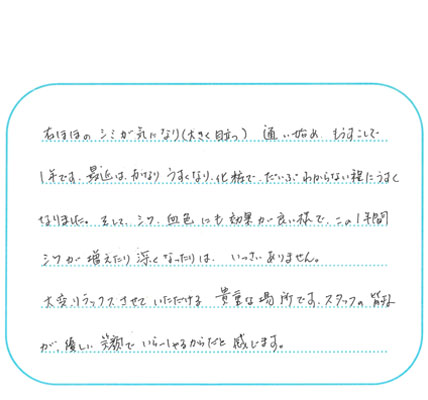 右ほほのシミが気になり(大きく目立つ) 通い始め もうすこしで
1年です。最近は、かなりうすくなり、化粧で、だいぶわからない程にうすく
なりました。そして、シワ、血色にも効果が良い様で、この1年間
シワが増えたり深くなったりは、いっさいありません。
大変リラックスさせていただける 貴重な場所です。スタッフの皆さん
が、優しい笑顔でいらっしゃるからだと感じます。